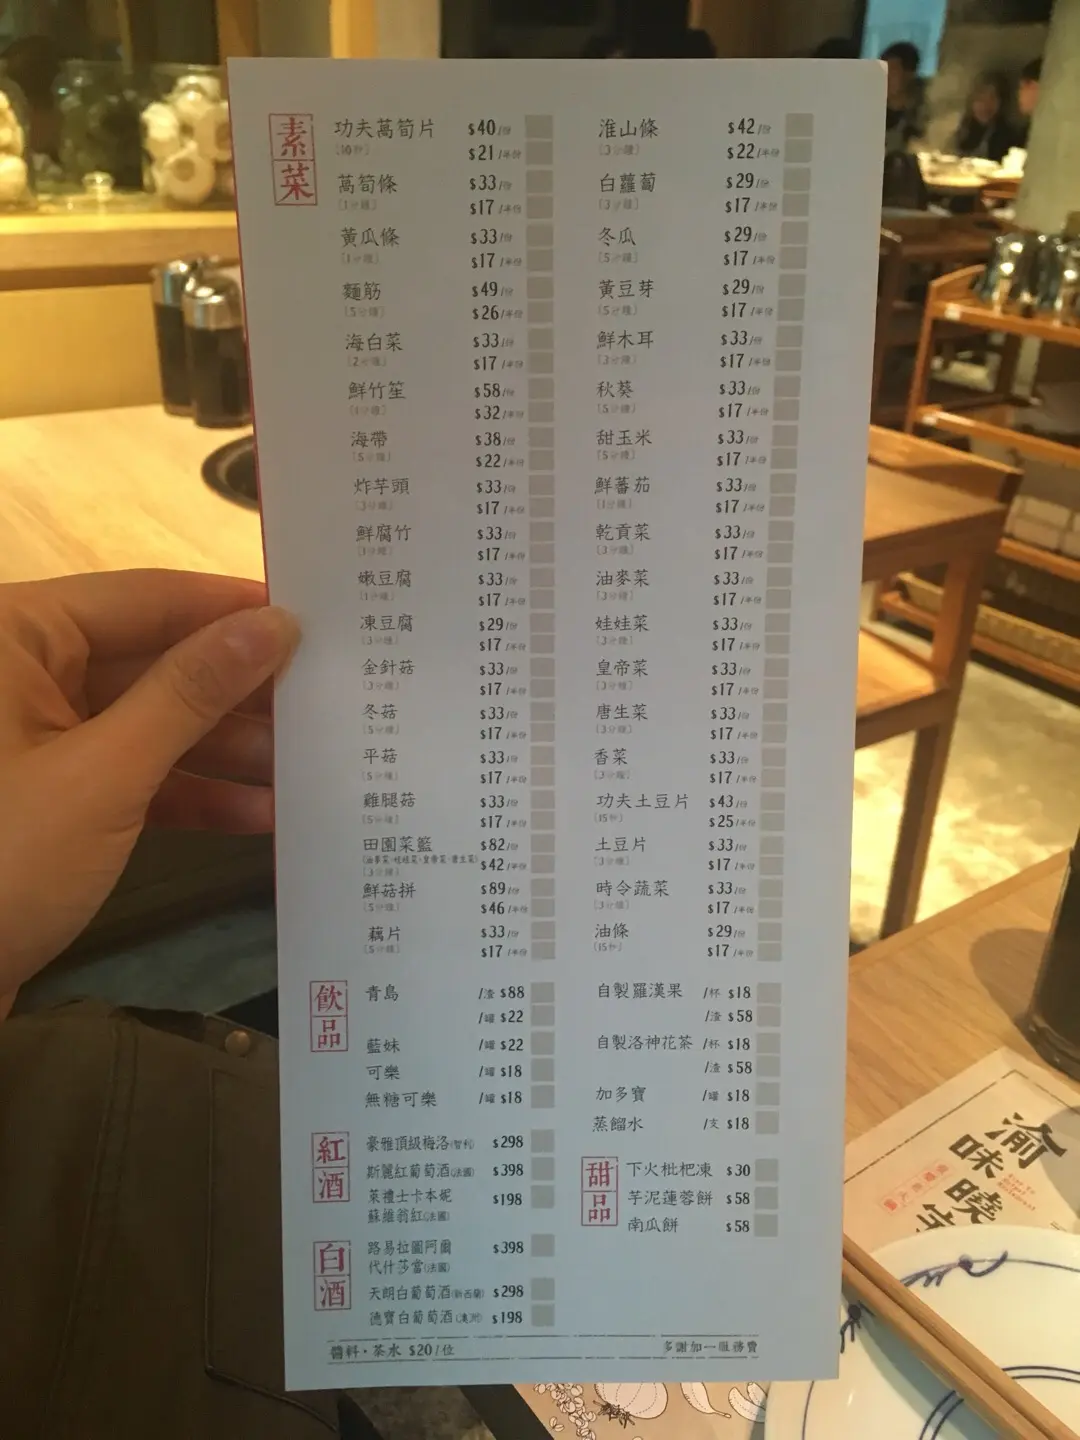 素菜
功夫萵筍片 $40/份
(10秒) $21/半份
萵筍條 $33/份
(1分鐘) $17/半份
黃瓜條 $33/份
(1分鐘) $17/半份
麵筋 $49/份
(5分鐘) $26/半份
海白菜 $33/份
(2分鐘) $17/半份
鮮竹笙 $58/份
$32/半份
海帶 $38/份
(5分鐘) $22/半份
炸芋頭 $33/份
(3分鐘) $17/半份
鮮腐竹 $33/份
(1分鐘) $17/半份
嫩豆腐 $33/份
(1分鐘) $17/半份
凍豆腐 $29/份
(3分鐘) $17/半份
金針菇 $33/份
(3分鐘) $17/半份
冬菇 $33/份
(5分鐘) $17/半份
平菇 $33/份
(5分鐘) $17/半份
雞腿菇 $33/份
(5分鐘) $17/半份
田園菜籃 $82/份
(油麥菜、娃娃菜、皇帝菜、唐生菜) $42/半份
(3分鐘)
鮮菇拼 $89/份
(5分鐘) $46/半份
藕片 $33/份
(5分鐘) $17/半份
淮山條 $42/份
(3分鐘) $22/半份
白蘿蔔 $29/份
(3分鐘) $17/半份
冬瓜 $29/份
(5分鐘) $17/半份
黃豆芽 $29/份
(5分鐘) $17/半份
鮮木耳 $33/份
(3分鐘) $17/半份
秋葵 $33/份
(5分鐘) $17/半份
甜玉米 $33/份
(5分鐘) $17/半份
鮮蕃茄 $33/份
(1分鐘) $17/半份
乾貢菜 $33/份
(3分鐘) $17/半份
油麥菜 $33/份
(3分鐘) $17/半份
娃娃菜 $33/份
(3分鐘) $17/半份
皇帝菜 $33/份
(3分鐘) $17/半份
唐生菜 $33/份
(3分鐘) $17/半份
香菜 $33/份
(3分鐘) $17/半份
功夫土豆片 $43/份
(15秒) $25/半份
土豆片 $33/份
(3分鐘) $17/半份
時令蔬菜 $33/份
(3分鐘) $17/半份
油條 $29/份
(15秒) $17/半份
飲品
青島 /渣 $88
/罐 $22
藍妹 /罐 $22
可樂 /罐 $18
無糖可樂 /罐 $18
自製羅漢果 /杯 $18
/渣 $58
自製洛神花茶 /杯 $18
/渣 $58
加多寶 /罐 $18
蒸餾水 /支 $18
紅酒
豪雅頂級梅洛(智利) $298
斯麗紅葡萄酒(法國) $398
萊禮士卡本妮 $198
蘇維翁紅(法國)
白酒
路易拉圖阿爾 $398
代什莎當(法國)
天朗白葡萄酒(新西蘭) $298
德寶白葡萄酒(澳洲) $198
甜品
下火枇杷凍 $30
芋泥蓮蓉餅 $58
南瓜餅 $58
醬料·茶水 $20/位
多謝加一服務費
渝味曉宇